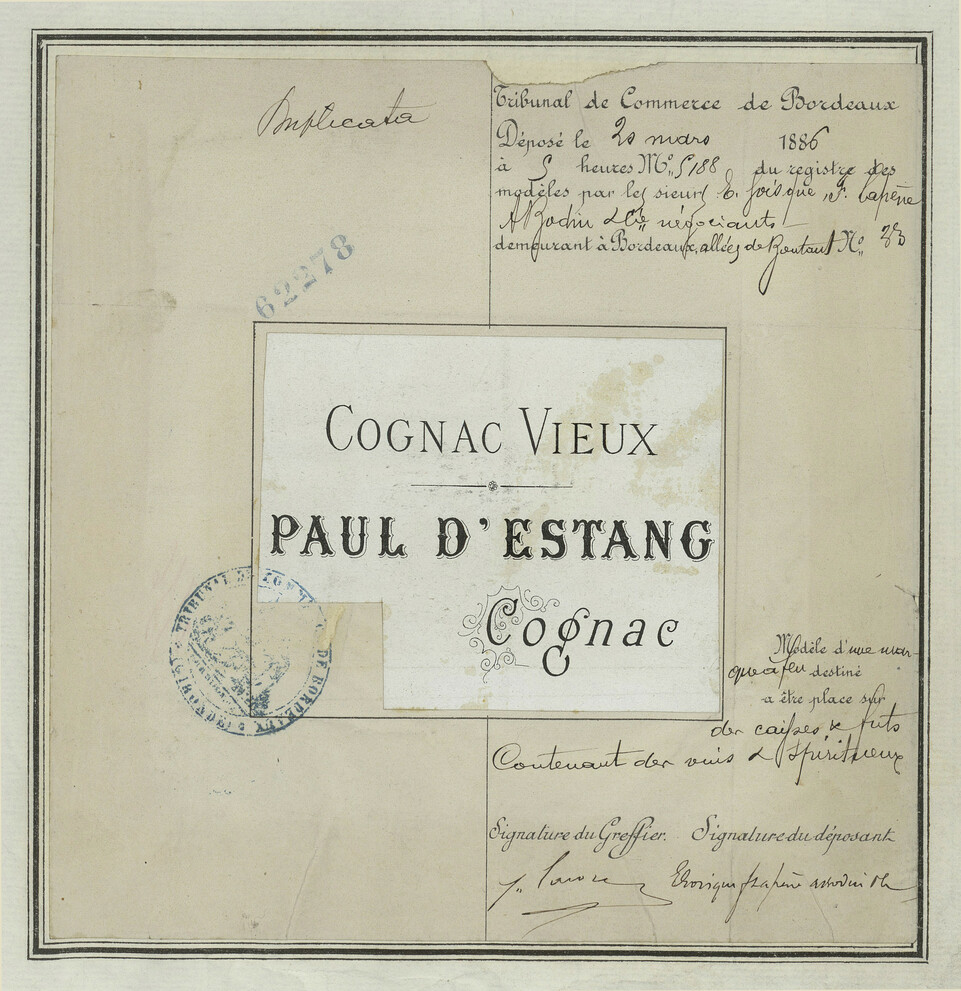 Duplicata
Tribunal de Commerce de Bordeaux
Déposé le 20 mars 1886
à 5 heures No. 5188 du registre des
modèles par les sieurs E. F. Lapène
& Cie négociants
demeurant à Bordeaux, allées de Boutaut No. 23
62278
COGNAC VIEUX
PAUL D'ESTANG
Cognac
TRIBUNAL DE COMMERCE DE BORDEAUX
Modèle d'une mar-
que à feu destiné
a être place sur
des caisses & futs
Contenant des vins & spiritueux
Signature du Greffier. Signature du déposant